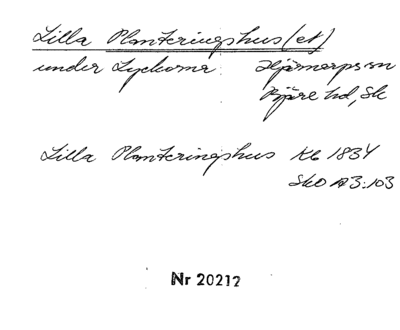 Lilla Planteringshus (et)
under Lyckorna Hjärnarps sn
Bjäre hd, Sk
Lilla Planteringshus Kb 1834
SkO A3:103
Nr 20212